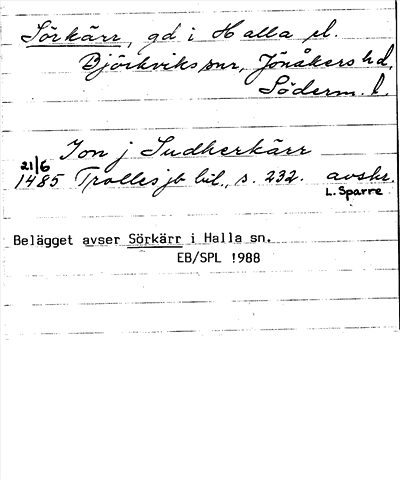 Sörkärr, gd i Halla sl.
Björkviks snr, Jönåkers hd,
Söderm. l.
Jon j Sudherkärr
21/6
1485 Trolles jb bil., s. 232. avskr.
L. Sparre
Belägget avser Sörkärr i Halla sn.
EB/SPL 1988